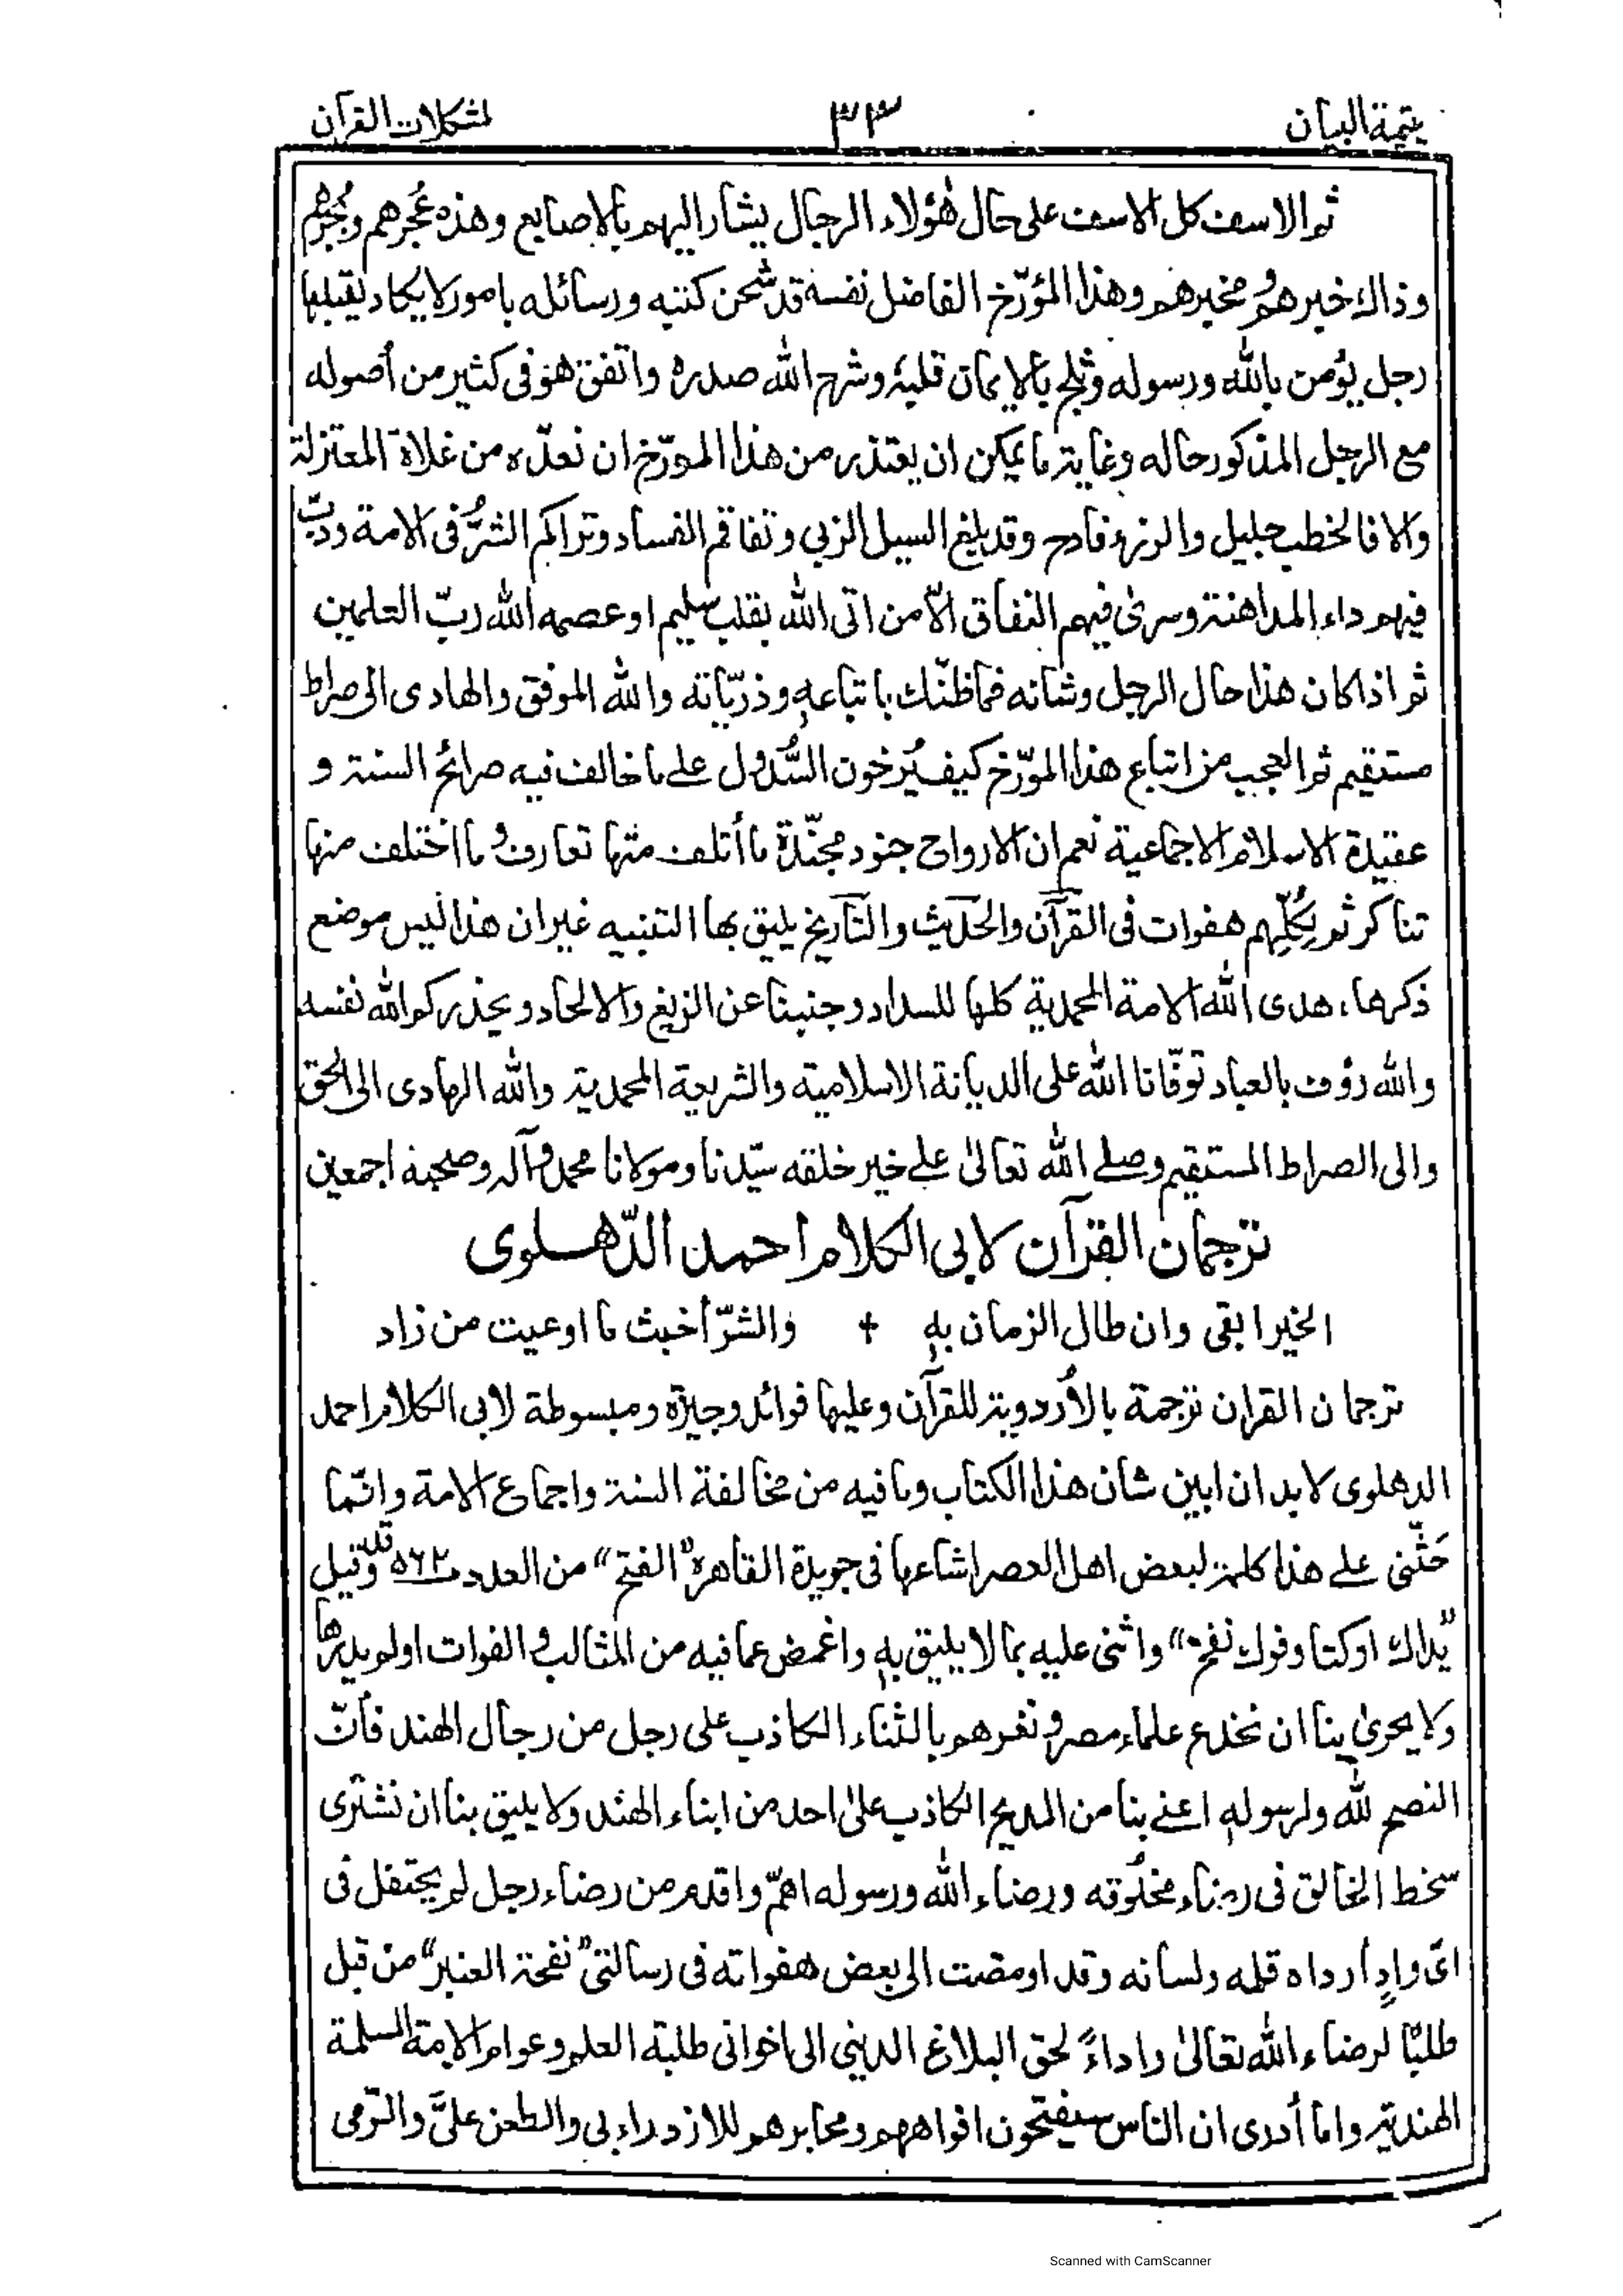 يتيمة البيان
٣٣
لمشكلات القرآن
ثم الاسف كل الاسف على حال هٰؤلاء الرجال يشار اليهم بالاصابع وهذه عُجَرهم وبُجَرهم
وذاك خيرهم ومخبرهم وهذا المؤرّخ الفاضل نفسه قد شحن كتبه ورسائله بامور لا يكاد يقبلها
رجل يؤمن بالله ورسوله وثلج بالايمان قلبه وشرح الله صدره واتفق هو فى كثير من أصوله
مع الرجل المذكور حاله وغاية ما يمكن ان يعتذر من هذا المورّخ ان نعدّه من غلاة المعتزلة
والا فالخطب جليل والرزء فادح وقد بلغ السيل الزبي وتفاقم الفساد وتراكم الشرُّ فى الامة ودبّ
فيهم داء المداهنة وسرىٰ فيهم النفاق الّا من اتى الله بقلب سليم او عصمه الله ربّ العلمين
ثم اذا كان هذا حال الرجل وشانه فما ظنّك باتباعهٖ وذرّياته والله الموفق والهادى الى صراط
مستقيم ثم العجب من اتباع هذا المورّخ كيف يُرخون السُّدول على ما خالف فيه صرائح السنة و
عقيدة الاسلام الاجماعية نعم ان الارواح جنود مجنّدة ما أتلف منها تعارف وما اختلف منها
تناكر ثم لِكُلِّهم هفوات فى القرآن والحديث والتاريخ يليق بها التنبيه غير ان هذا ليس موضع
ذكرها، هدى الله الامة المحمدية كلها للسداد وجنبنا عن الزيغ والالحاد ويحذركم الله نفسه
والله رؤف بالعباد توفّانا الله على الديانة الاسلامية والشريعة المحمدية والله الهادى الى الحق
والى الصراط المستقيم وصلے الله تعالىٰ علے خير خلقه سيّدنا ومولانا محمد وآله وصحبه اجمعين
ترجمان القرآن لابى الكلام احمد الدّهلوى
الخير ابقى وان طال الزمان بهٖ + والشرّ أخبث ما اوعيت من زاد
ترجمان القران ترجمة بالأردوية للقرآن وعليها فوائد وجيزة ومبسوطة لابى الكلام احمد
الدهلوى لابد ان ابين شان هذا الكتاب وما فيه من مخالفة السنة واجماع الامة وانّما
حَثّنى علے هذا كلمة لبعض اهل العصر اشاعها فى جريدة القاهرة "الفتح" من العدد ٥٦٢ وقيل
"يداك اوكتا وفوك نفخ" واثنى عليه بما لا يليق بهٖ واغمض عما فيه من المثالب والفوات او لم يدرها
ولا يحرىٰ بنا ان نخدع علماء مصر ونغرهم بالثناء الكاذب على رجل من رجال الهند فانّ
النصح لله ولرسولهٖ اعنے بنا من المديح الكاذب علىٰ احد من ابناء الهند ولا يليق بنا ان نشترى
سخط الخالق فى رضاء مخلوقه ورضاء الله ورسوله اهمّ واقدم من رضاء رجل لم يحتفل فى
اىّ وادٍ أرداه قلمه ولسانه وقد اومضت الى بعض هفواته فى رسالتى "نفحة العنبر" من قبل
طلبًا لرضاء الله تعالىٰ واداءً لحق البلاغ الدينى الى اخوانى طلبة العلم وعوام الامة المسلمة
الهندية وانا أدرى ان الناس سيفتحون افواههم ومحابرهم للازدراء بى والطعن علىَّ والرّمى
Scanned with CamScanner